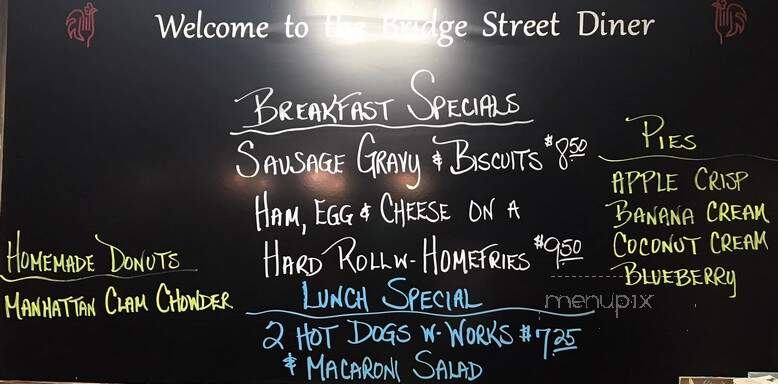 Welcome to the Bridge Street Diner
BREAKFAST SPECIALS
SAUSAGE GRAVY & BISCUITS $8.50
HAM, EGG & CHEESE ON A
HARD ROLL W- HOMEFRIES $9.50
LUNCH SPECIAL
2 HOT DOGS W- WORKS $7.25
& MACARONI SALAD
HOMEMADE DONUTS
MANHATTAN CLAM CHOWDER
PIES
APPLE CRISP
BANANA CREAM
COCONUT CREAM
BLUEBERRY
menupix